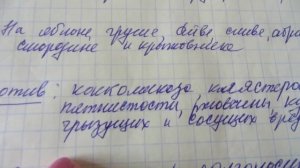 На яблоне, груше, айве, сливе, абри
смородине и крыжовнике
отив: коккомикоза, клястеро
пятнистости, ржавчины, ка
грызущих и сосущих вред